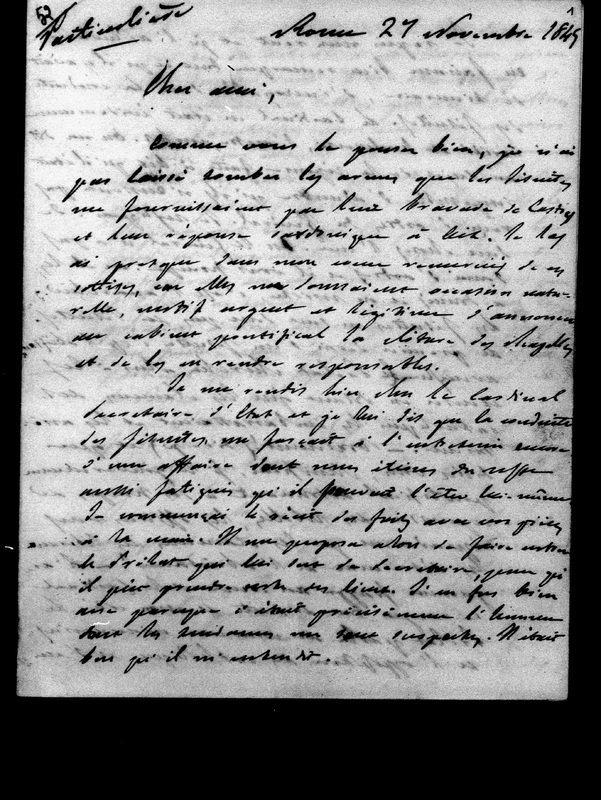 Particulière
Rome 27 Novembre 1845
Cher ami,
Comme vous le pensez bien, je n'ai
pas laissé tomber les armes que les Jésuites
me fournissaient par leur bravade de
et leur réponse sardonique à Aix. Je les
ai presque dans mon cœur remerciés de ces
sottises, car elles me donnaient occasion natu-
relle, motif urgent et légitime d'annoncer
au cabinet pontifical la clôture des chapelles
et de les en rendre responsables.
Je me rendis hier chez le Cardinal
Secrétaire d'Etat et je lui dis que la conduite
des Jésuites me forçait à l'entretenir encore
d'une affaire dont nous étions du reste
aussi fatigués qu'il pouvait l'être lui-même
Je commençai le récit des faits avec vos pièces
à la main. Il me proposa alors de faire entrer
le Prélat qui lui sert de Secrétaire, pour qu'
il pût prendre note des lieux. J'en fus bien
aise parceque c'était précisément l'homme
dont les tendances me sont suspectes. Il était
bon qu'il m'entendit.